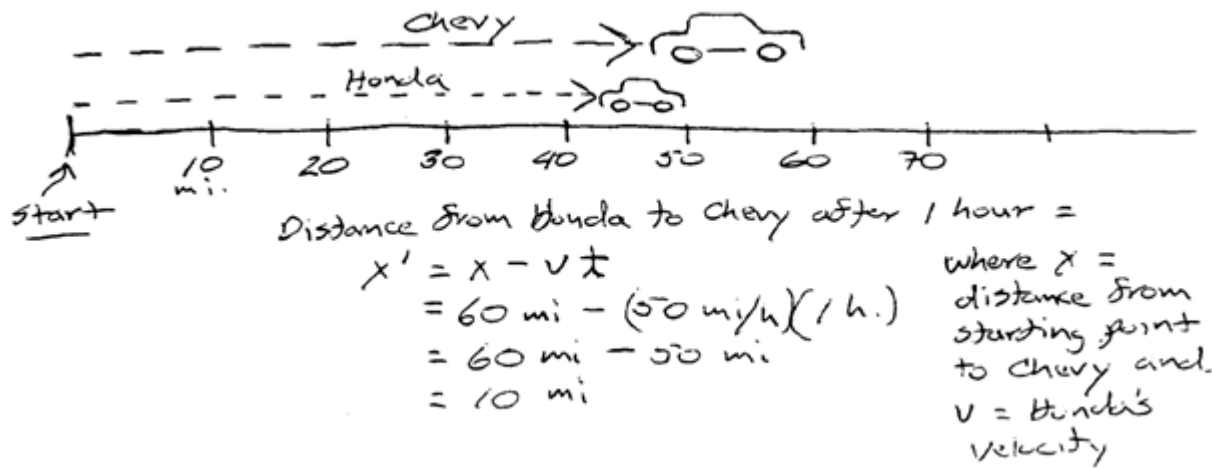 Chevy
Honda
10 20 30 40 50 60 70
mi.
start
Distance from Honda to Chevy after 1 hour =
x' = x - v t
= 60 mi - (50 mi/h)(1 h.)
= 60 mi - 50 mi
= 10 mi
where x =
distance from
starting point
to Chevy and
v = Honda's
velocity